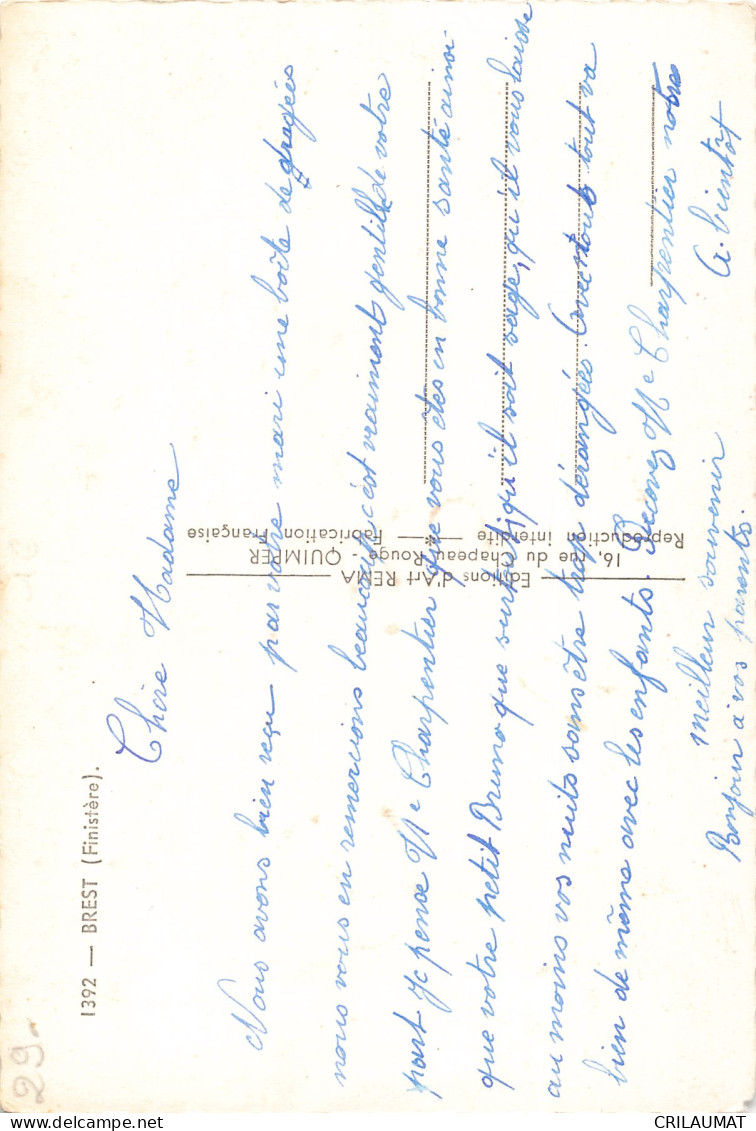 1392 — BREST (Finistère).
Chère Madame
Nous avons bien reçu par votre mari une boîte de dragées
nous vous en remercions beaucoup, c'est vraiment gentille de votre
part Je pense Me Charpentier que vous êtes en bonne santé ainsi
que votre petit Bruno que surtout qu'il soit sage, qu'il vous laisse
au moins vos nuits sans être trop dérangées. Avec nous tout va
bien de même avec les enfants. Recevez Me Charpentier notres
meilleur souvenir
A. bientôt
Bonjour à vos parents.
Editions d'Art REMA
16, rue du Chapeau-Rouge - QUIMPER
Reproduction interdite — * — Fabrication Française
29-
CRILAUMAT